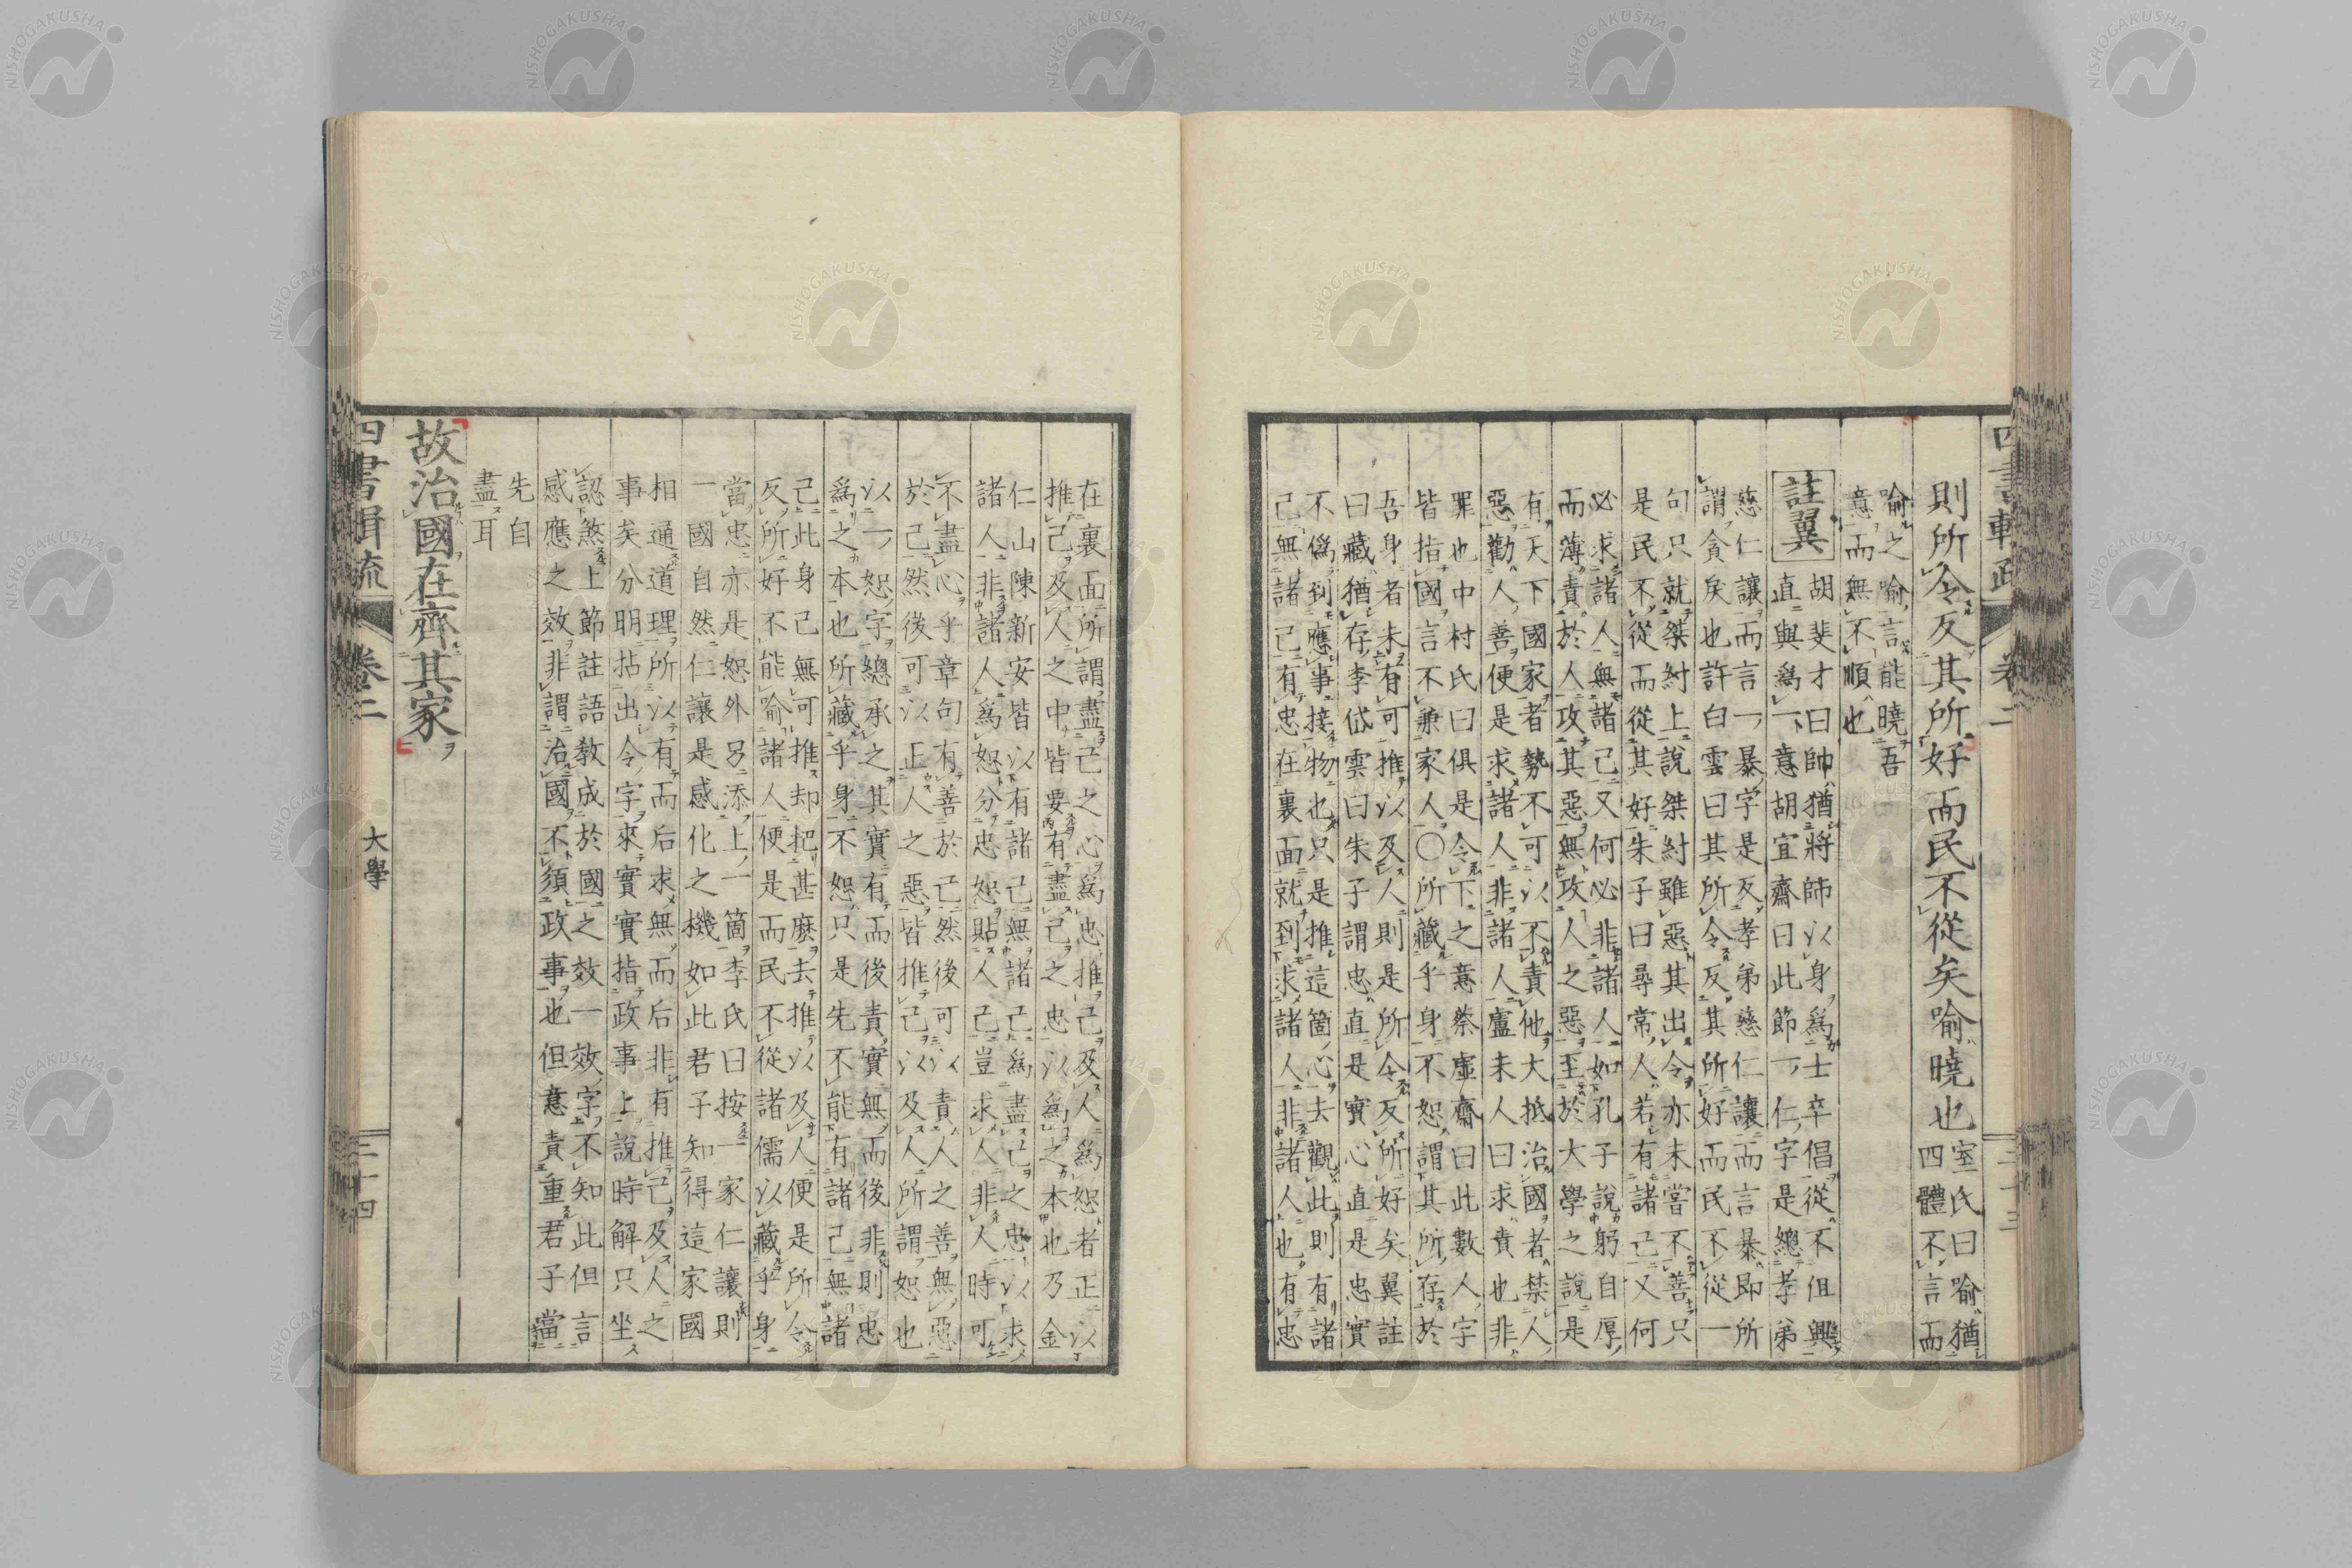 則所令反其所好而民不從矣喩曉也
室氏曰喩猶
四體不言而
喩之喩言能曉吾
意而無不順也
註翼
胡斐才曰帥猶將師以身爲士卒倡從不但興
直與爲一下意胡宜齋曰此節一仁字是總孝弟
慈仁讓而言一暴字是反孝弟慈仁讓而言暴即所
謂貪戾也許白雲曰其所令反其所好而民不從一
句只就桀紂上說桀紂雖惡其出令亦未嘗不善只
是民不從而從其好朱子曰尋常人若有諸己又何
必求諸人無諸己又何必非諸人如孔子說躬自厚
而薄責於人攻其惡無攻人之惡至於大學之說是
有天下國家者勢不可以不責他大抵治國者禁人
惡勸人善便是求諸人非諸人盧未人曰求責也非
罪也中村氏曰俱是令下之意蔡虛齋曰此數人字
皆指國言不兼家人〇所藏乎身不恕謂其所存於
吾身者未有可推以及人則是所令反所好矣翼註
曰藏猶存李岱雲曰朱子謂忠直是實心直是忠實
不僞到應事接物也只是推這箇心去觀此則有諸
己無諸己有忠在裏面就到求諸人非諸人也有忠
在裏面所謂盡己之心爲忠推己及人爲恕者正以
推己及人之中皆要有盡己之忠以爲之本也乃金
仁山陳新安皆以有諸己無諸己爲盡己之忠以求
諸人非諸人爲恕分忠恕貼人己豈求人非人時可
不盡心乎章句有善於己然後可以責人之善無惡
於己然後可以正人之惡皆推己以及人所謂恕也
以一恕字總承之其實有而後責實無而後非則忠
爲之本也所藏乎身不恕只是先不能有諸己無諸
己此身己無可推却把甚麼去推以及人便是所令
反所好不能喩諸人便是而民不從諸儒以藏乎身
當忠亦是恕外另添上一箇李氏曰按一家仁讓則
一國自然仁讓是感化之機如此君子知得這家國
相通道理所以有而后求無而后非有推己及人之
事矣分明拈出令字來實實指政事上說時解只坐
認煞上節註語敎成於國之效一效字不知此但言
感應之效非謂治國不須政事也但意責重君子當
先自
盡耳
故治國在齊其家
四書輯疏
卷二
大學
三十四